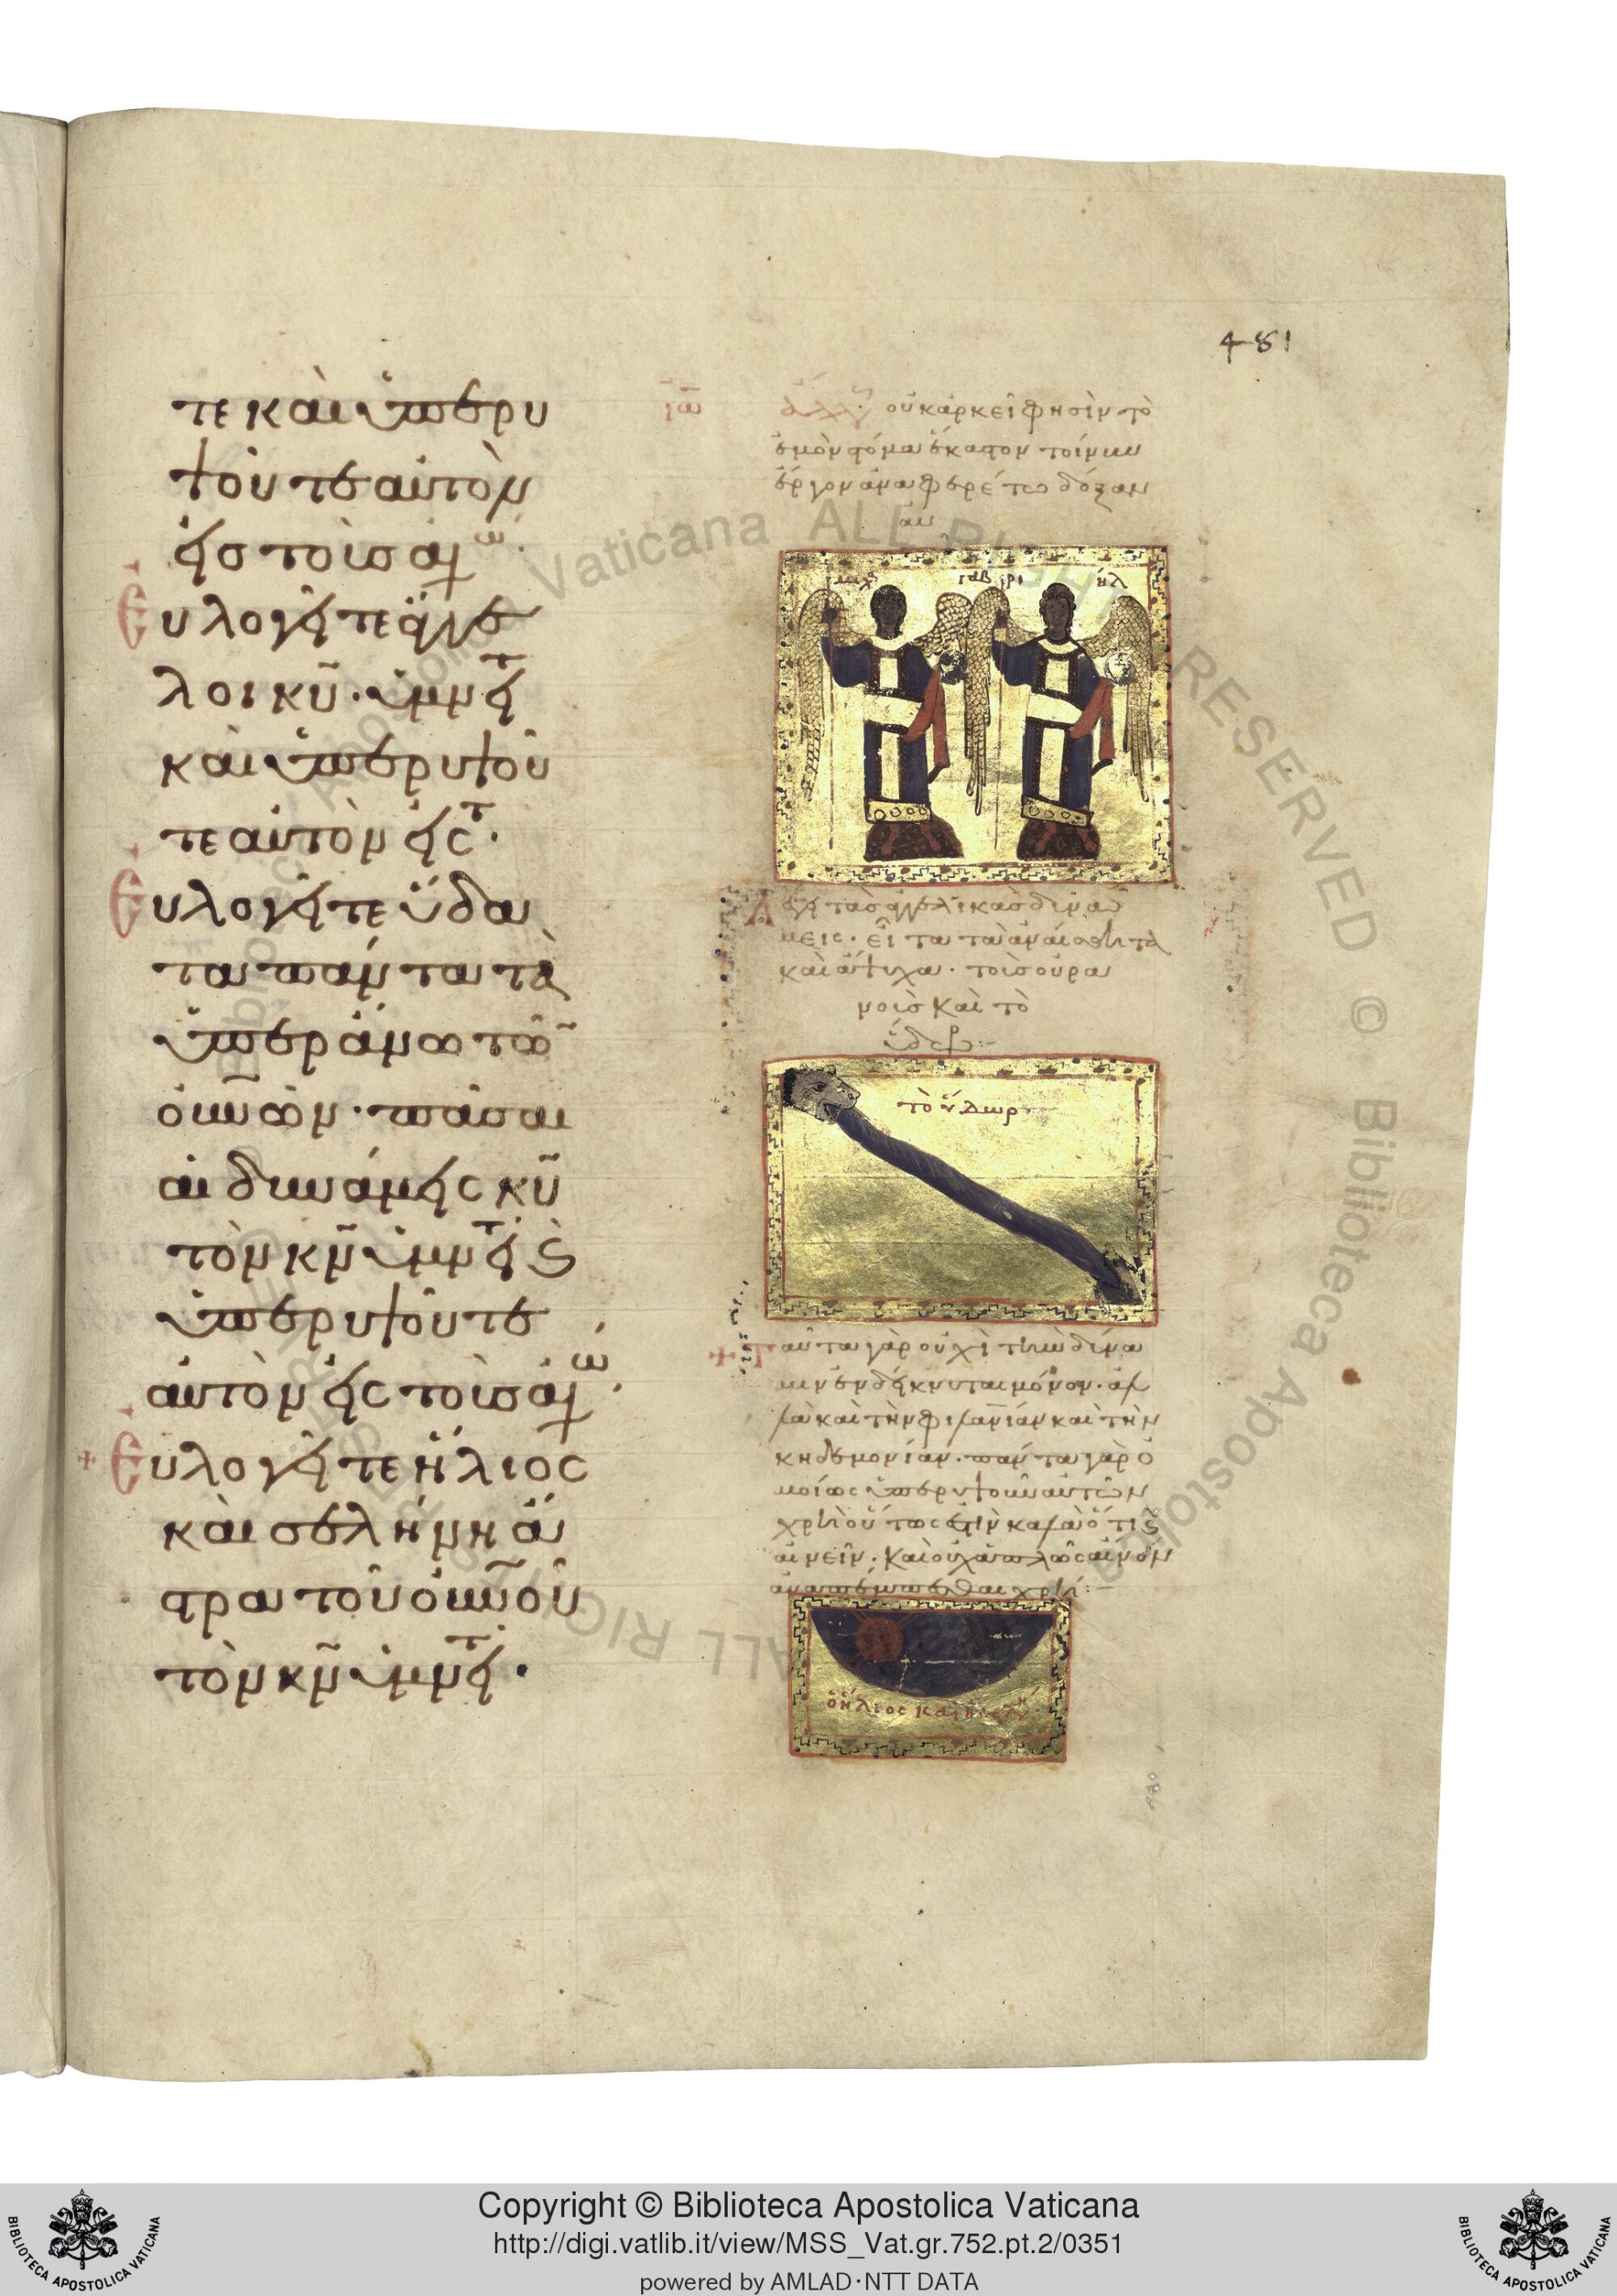 481
τε καὶ ὑπερυ
ψοῦτε αὐτὸν
εἰς τοὺς αἰω
Εὐλογεῖτε ἄγγε
λοι κυ̅· ὑμνεῖτ
καὶ ὑπερυψοῦ
τε αὐτὸν εἰς τ·
Εὐλογεῖτε ὕδα
τα πάντα τὰ
ὑπεράνω τῶ
οὐν̅ων· πᾶσαι
αἱ δυνάμεις κυ̅
τὸν κν̅ ὑμνεῖτ ϛ
ὑπερυψοῦτε
αὐτὸν εἰς τοὺς αἰω
Εὐλογεῖτε ἥλιος
καὶ σελήνη ἄ
στρα τοῦ οὐν̅οῦ
τὸν κν̅ ὑμνεῖτ·
ιω̅
οὐκ ἀρκεῖ φησὶν τὸ
ἐμὸν στόμα ἕκαστον τοίνυν
ἔργον ἀναφερέτω δόξαν
μιχ γαβρι ηλ
Λέγει τὰς ἀγγελικὰς δυνά
μεις· εἶτα τὰ ἀναίσθητα
καὶ ἄψυχα· τοῖς οὐρα
νοῖς καὶ τὸ
ὕδωρ:-
τὸ ὕδωρ
Ταῦτα γὰρ οὐχὶ τὴν δύνα
μιν ἐνδείκνυται μόνον· ἀλ
λὰ καὶ τὴν φιλανίαν καὶ τὴν
κηδεμονίαν· πάντα γὰρ ὁ
μοίως ὑπερυψοῦν αὐτὸν
χρὴ οὕτως
αἰνεῖν· καὶ οὐχ ἁπλῶς αἶνον
ἀναπέμπεσθαι χρή:-
ὁ ἥλιος καὶ ἡ σελη
Copyright © Biblioteca Apostolica Vaticana
http://digi.vatlib.it/view/MSS_Vat.gr.752.pt.2/0351
powered by AMLAD·NTT DATA
BIBLIOTECA APOSTOLICA VATICANA
BIBLIOTECA APOSTOLICA VATICANA